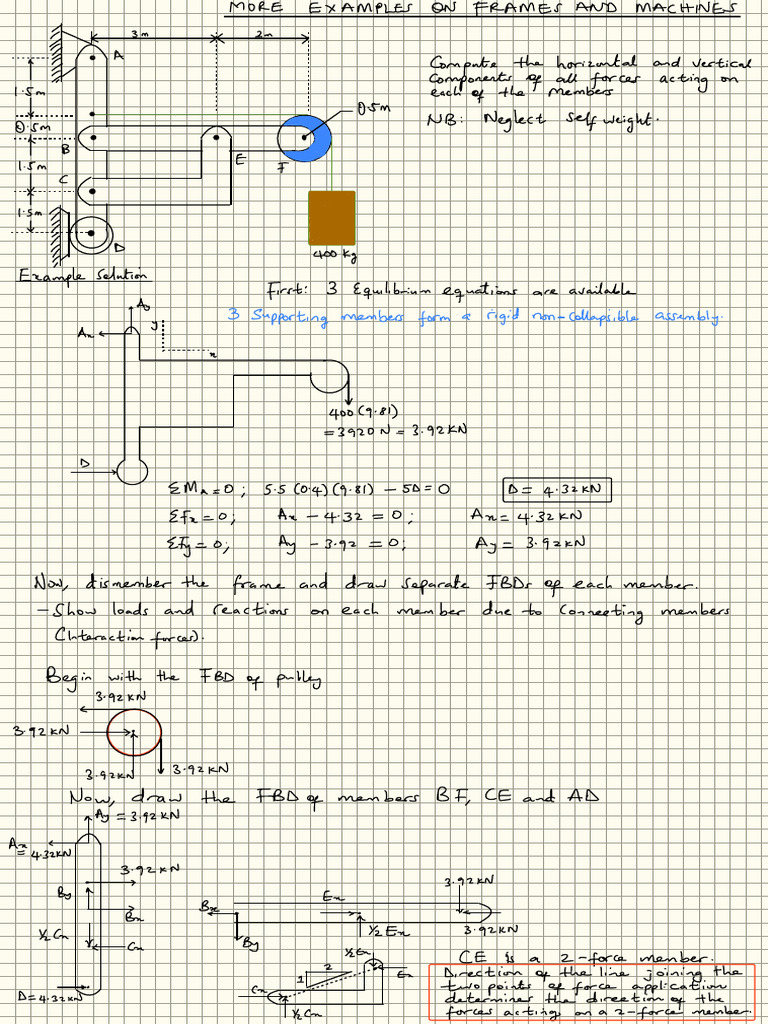 MORE EXAMPLES ON FRAMES AND MACHINES
3m
2m
A
Compute the horizontal and vertical
components of all forces acting on
each of the members
NB: Neglect self weight.
1.5m
0.5m
0.5m
B
E
F
1.5m
C
1.5m
D
400 Kg
Example Solution
First: 3 Equilibrium equations are available
3 Supporting members form a rigid non-collapsible assembly.
Ay
Ax
y
x
400(9.81)
= 3920 N = 3.92 KN
D
ΣMA=0; 5.5 (0.4)(9.81) - 5D = 0 D = 4.32 KN
Σfx=0; Ax - 4.32 = 0; Ax = 4.32 KN
Σfy=0; Ay - 3.92 = 0; Ay = 3.92 KN
Now, dismember the frame and draw separate FBDs of each member.
- Show loads and reactions on each member due to connecting members
(Interaction forces).
Begin with the FBD of pulley
3.92 KN
3.92 KN
3.92KN
3.92 KN
Now, draw the FBD of members BF, CE and AD
Ay = 3.92 KN
Ax
= 4.32KN
3.92 KN
By
Bx
1/2 Cx
Cx
D = 4.32 KN
3.92 KN
Ex
Bx
1/2 Ex
3.92 KN
By
1/2 Ex
2
1
Ex
Cx
1/2 Cx
CE is a 2-force member.
Direction of the line joining the
two points of force application
determines the direction of the
forces acting on a 2-force member.